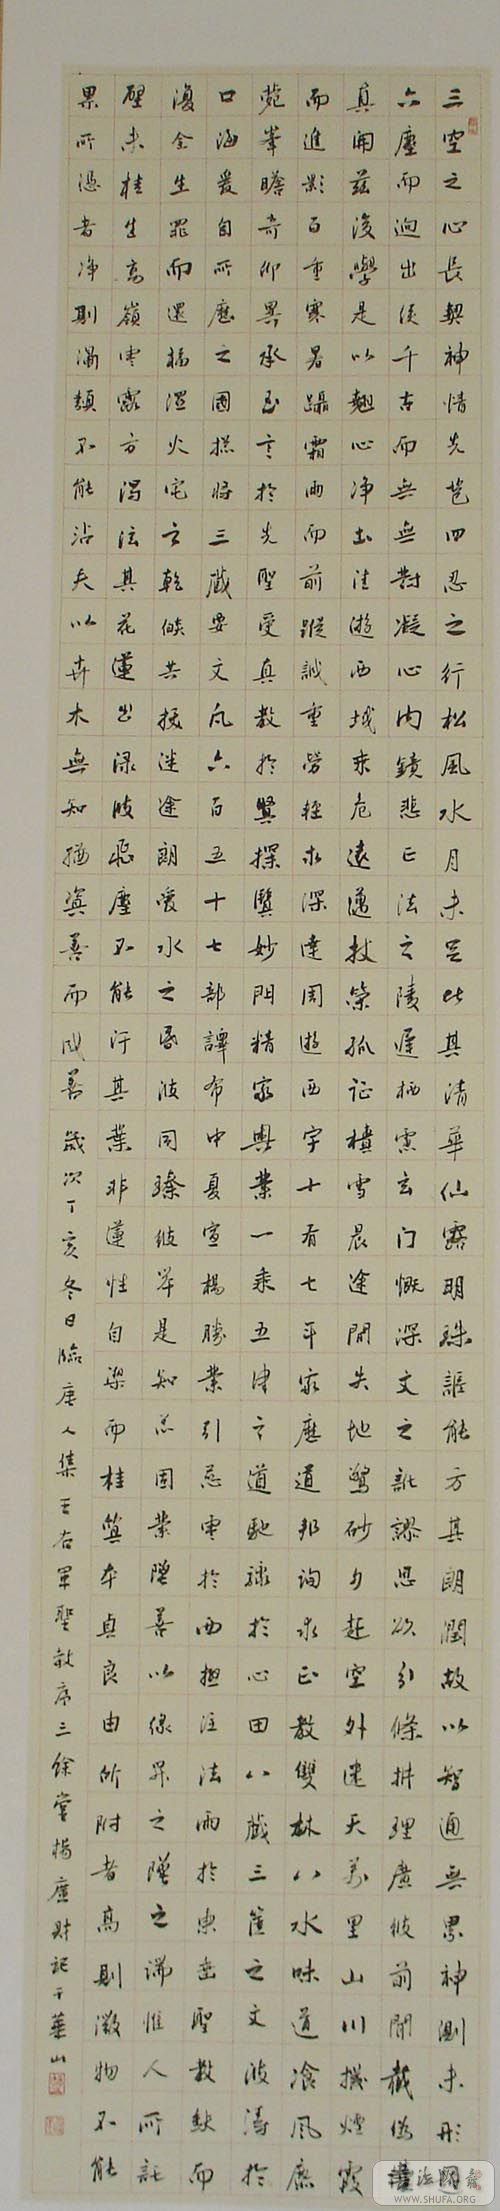 三空之心長契神情先苞四忍之行松風水月未足比其清華仙露明珠詎能方其朗潤故以智通無累神測未形
六塵而迥出隻千古而無無對凝心內鏡悲正法之陵遲栖慮玄门慨深文之訛謬思欲分條析理廣彼前聞截偽
真開茲後學是以翹心淨土往遊西域乘危遠邁杖策孤征積雪晨途間失地驚砂夕起空外迷天萬里山川撥煙霞
而進影百重寒暑躡霜雨而前蹤誠重勞輕求深達周遊西宇十有七年窮歷道邦詢求正教雙林八水味道飡風鹿
菀峯瞻奇仰異承至言於先聖受真教於賢探賾妙門精窮奧業一乘五律之道馳驟於心田八藏三篋之文波濤於
口海爰自所歷之國摠將三藏要文凡六百五十七部譯布中夏宣揚勝業引慈雲於西極注法雨於東垂聖教缺而
復全生罪而還福濕火宅之乾燄共拔迷途朗愛水之昏波同臻彼岸是知惡因業墜善以緣昇之墜之端惟人所託
譬夫桂生高嶺零露方得泫其花蓮出淥波飛塵不能汙其葉非蓮性自潔而桂質本貞良由所附者高則微物不能
累所憑者淨則濁類不能沾夫以卉木無知猶資善而成善 歲次丁亥冬日臨唐人集王右軍聖教序三餘堂楊廣財記于華山
WWW.SHUFA.ORG